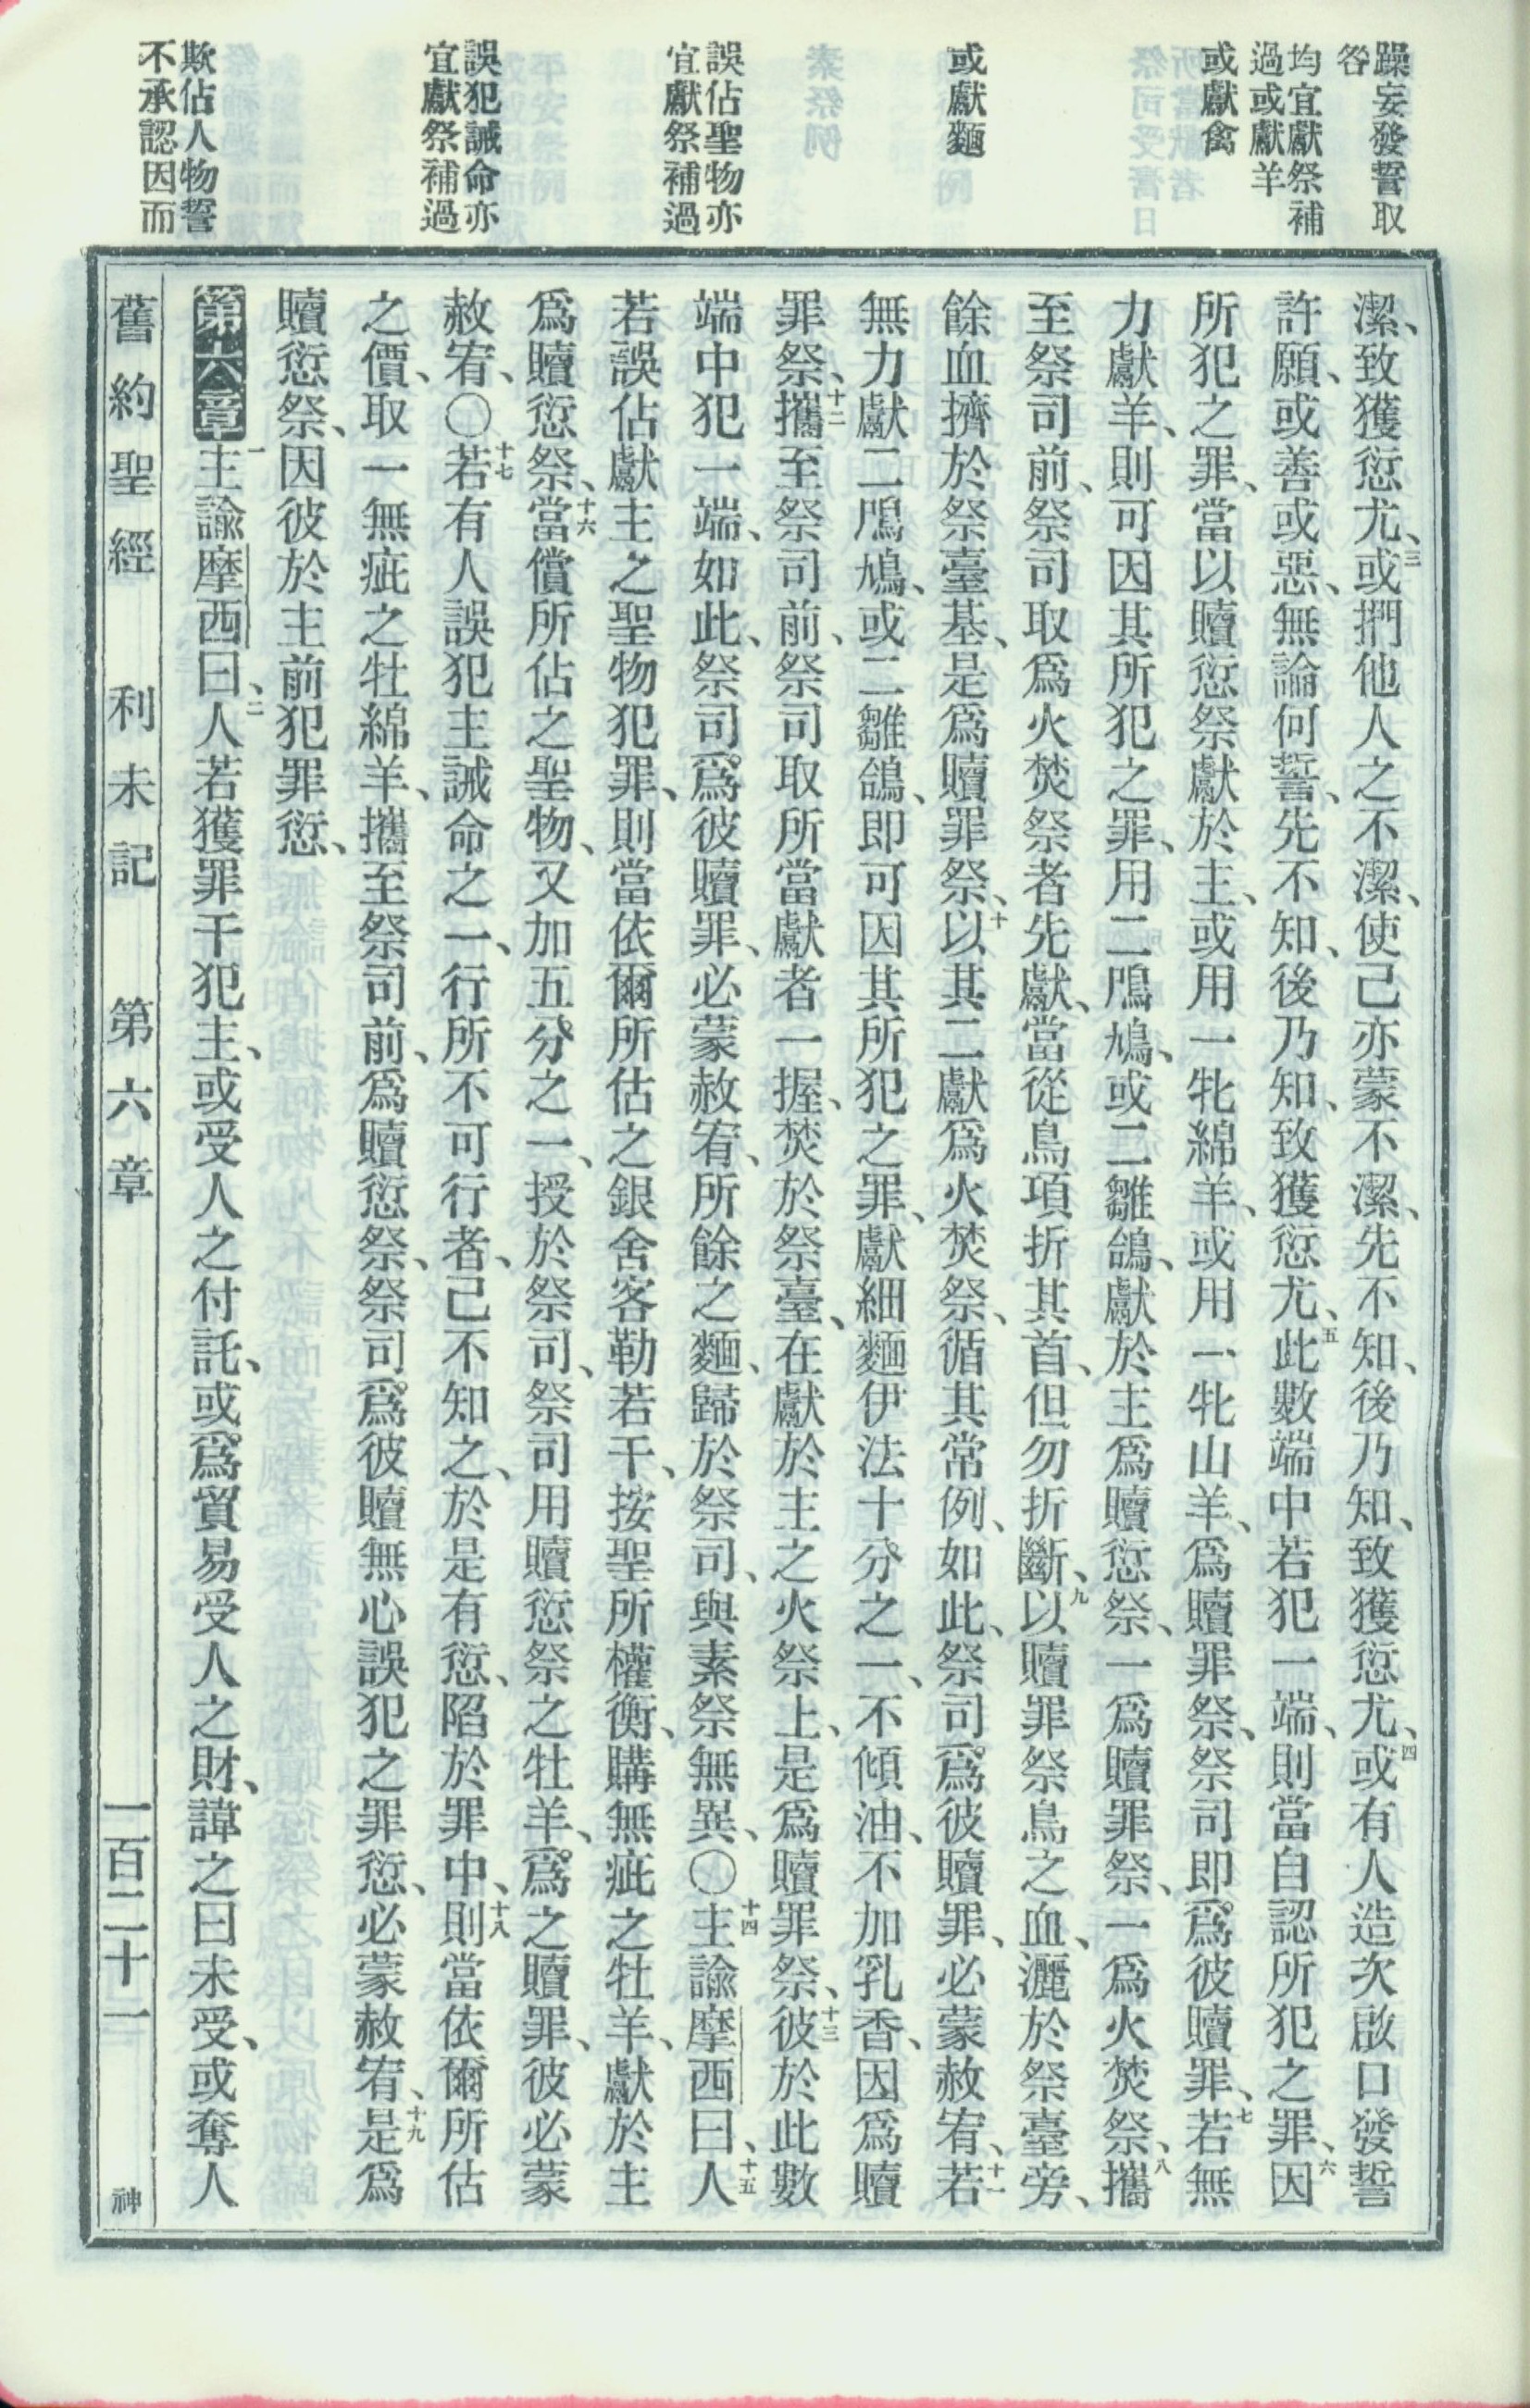 躁妄發誓取
咎
均宜獻祭補
過或獻羊
或獻禽
或獻麵
誤佔聖物亦
宜獻祭補過
誤犯誡命亦
宜獻祭補過
欺佔人物誓
不承認因而
潔、致獲愆尤、三或捫他人之不潔、使己亦蒙不潔、先不知、後乃知、致獲愆尤、四或有人造次啟口發誓
許願、或善或惡、無論何誓、先不知、後乃知、致獲愆尤、五此數端中若犯一端、則當自認所犯之罪、六因
所犯之罪、當以贖愆祭獻於主、或用一牝綿羊、或用一牝山羊、爲贖罪祭、祭司即爲彼贖罪、七若無
力獻羊、則可因其所犯之罪、用二鳲鳩、或二雛鴿、獻於主爲贖愆祭、一爲贖罪祭、一爲火焚祭、八攜
至祭司前、祭司取爲火焚祭者先獻、當從鳥項折其首、但勿折斷、九以贖罪祭鳥之血、灑於祭臺旁、
餘血擠於祭臺基、是爲贖罪祭、十以其二獻爲火焚祭、循其常例、如此、祭司爲彼贖罪、必蒙赦宥、十一若
無力獻二鳲鳩、或二雛鴿、即可因其所犯之罪、獻細麵伊法十分之一、不傾油、不加乳香、因爲贖
罪祭、十二攜至祭司前、祭司取所當獻者一握、焚於祭臺、在獻於主之火祭上、是爲贖罪祭、十三彼於此數
端中犯一端、如此、祭司爲彼贖罪、必蒙赦宥、所餘之麵、歸於祭司、與素祭無異、〇十四主諭摩西曰、十五人
若誤佔獻主之聖物犯罪、則當依爾所估之銀舍客勒若干、按聖所權衡、購無疵之牡羊、獻於主
爲贖愆祭、十六當償所佔之聖物、又加五分之一、授於祭司、祭司用贖愆祭之牡羊、爲之贖罪、彼必蒙
赦宥、〇十七若有人誤犯主誡命之一、行所不可行者、己不知之、於是有愆、陷於罪中、十八則當依爾所估
之價、取一無疵之牡綿羊、攜至祭司前、爲贖愆祭、祭司爲彼贖無心誤犯之罪愆、必蒙赦宥、十九是爲
贖愆祭、因彼於主前犯罪愆、
第六章一主諭摩西曰、二人若獲罪干犯主、或受人之付託、或爲貿易受人之財、諱之曰未受、或奪人
舊約聖經 利未記 第六章 一百二十一 神